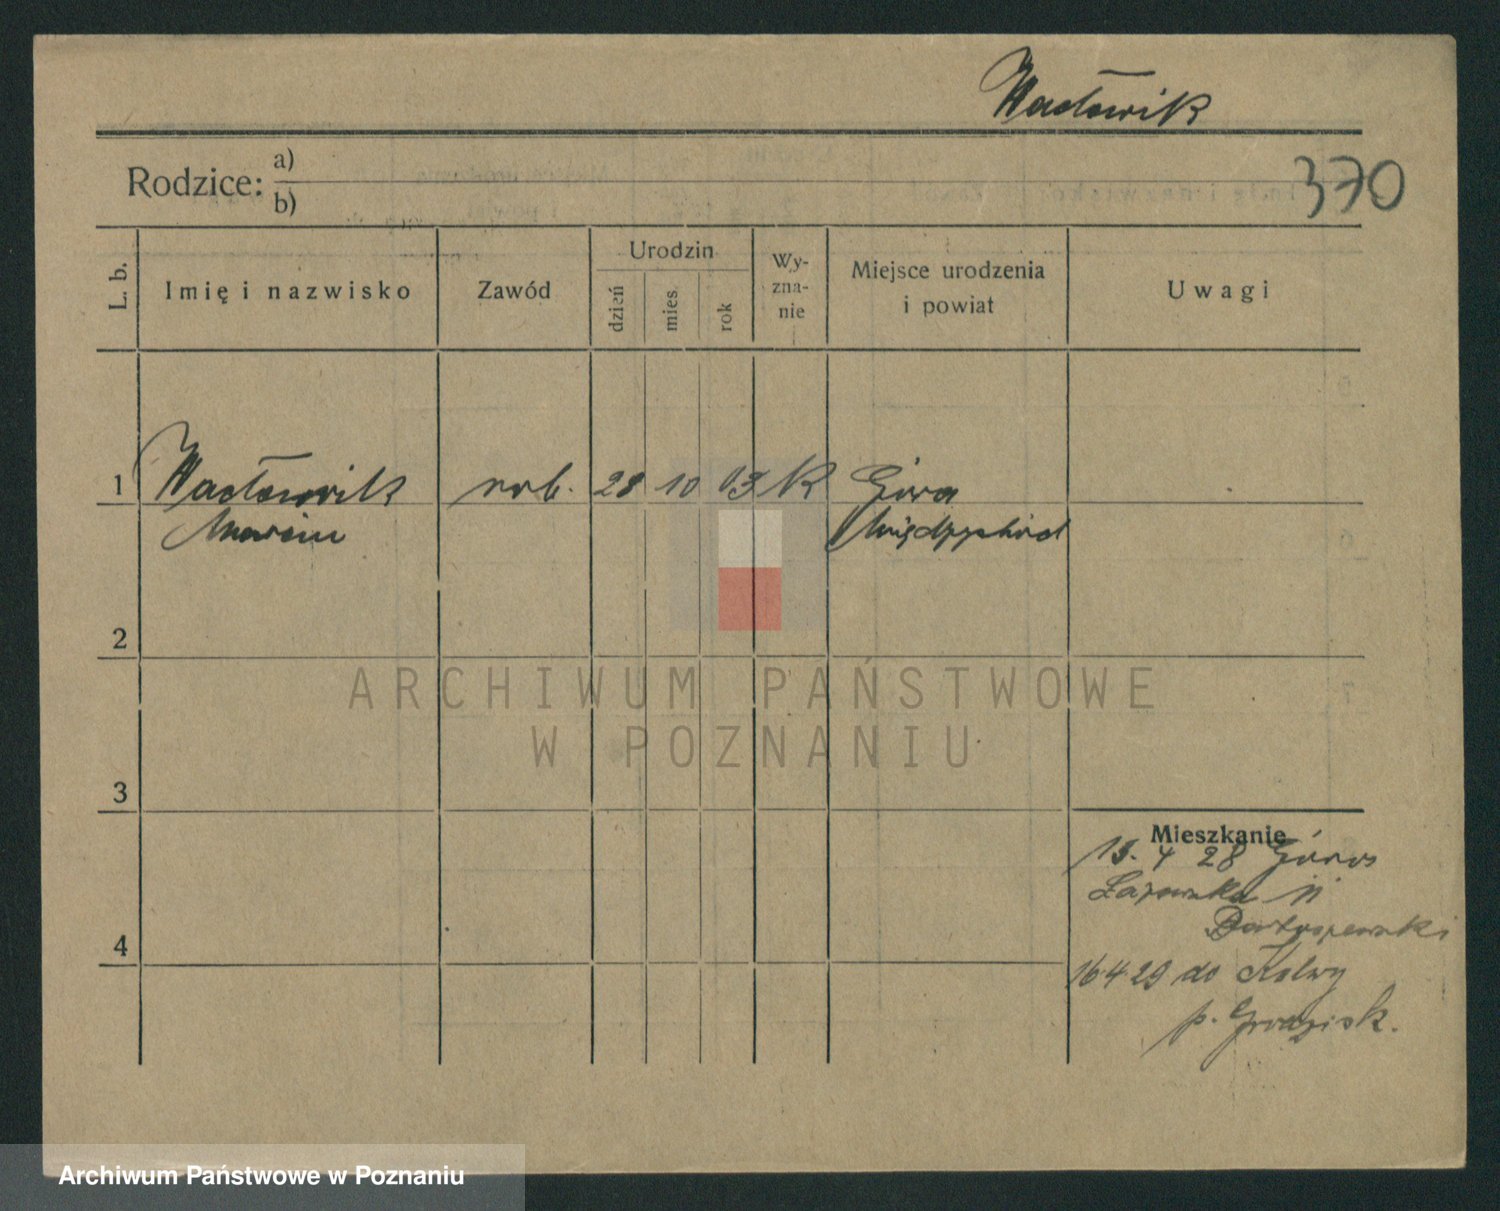 Wacławik
Rodzice: a)
b)
370
L. b.
Imię i nazwisko
Zawód
Urodzin
dzień
mies.
rok
Wy-
zna-
nie
Miejsce urodzenia
i powiat
Uwagi
1 Wacławik rob. 28 10 03 K Góra
Marcin Międzychód
2
ARCHIWUM PAŃSTWOWE
W POZNANIU
3
Mieszkanie
19. 4 28
Łazowska 11
Bartoszewski
4
16.4.29 do
p. Grodzisk.
Archiwum Państwowe w Poznaniu